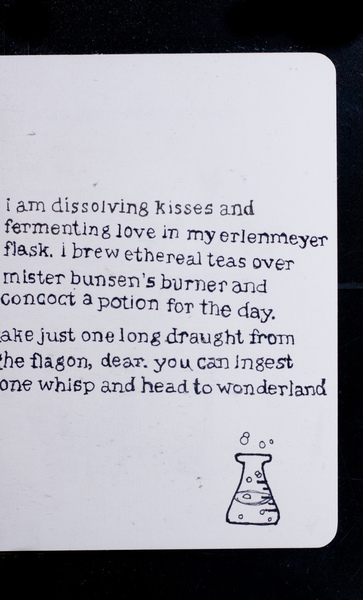 i am dissolving kisses and
fermenting love in my erlenmeyer
flask. i brew ethereal teas over
mister bunsen's burner and
concoct a potion for the day.
ake just one long draught from
he flagon, dear. you can ingest
one whisp and head to wonderland